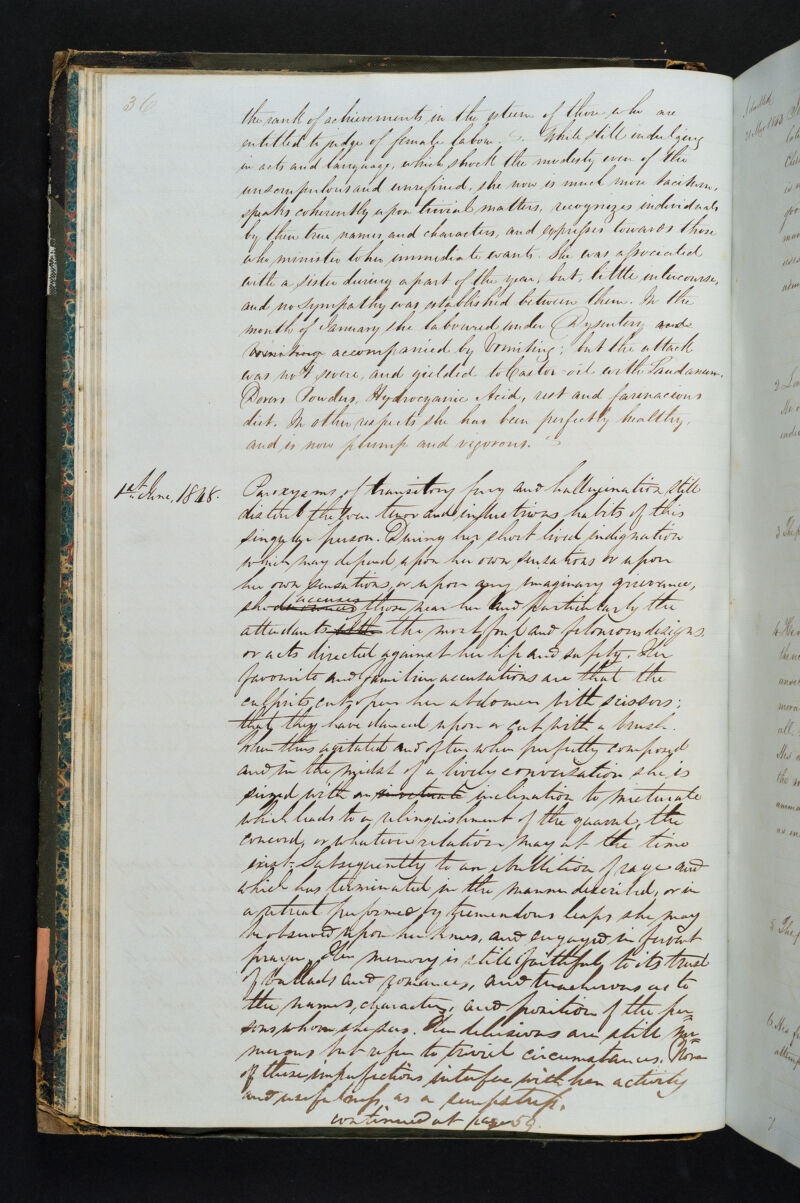 36
the rank of achievements in the esteem of those who are
entitled to judge of female labour. While still indulging
in acts and language, which shock the modesty even of the
unscrupulous and unrefined, she now is much more taciturn,
speaks coherently upon trivial matters, recognizes individuals
by their true names and characters, and expresses towards those
who minister to her immediate wants. She was associated
with a sister during a part of the year, but, little intercourse,
and no sympathy was established between them. In the
month of January she laboured under Dysentery and
Vomiting accompanied by Vomiting; but the attack
was not severe, and yielded to Castor-oil with Laudanum,
Dovers Powders, Hydrocyanic Acid, rest and farinacious
diet. In other respects she has been perfectly healthy,
and is now plump and vigorous.
1st June, 1848.
Paroxysms of transitory fury and hallucination still
disturb the even tenor and industrious habits of this
singular person. During her short lived indignation
which may depend upon her own sensations or upon
her own sensations, or upon any imaginary grievance,
she accuses those near her and particularly the
attendants with the most foul and felonious designs
or acts directed against her life and safety. Her
favourite and familiar accusations are that the
culprits cut open her abdomen with scissors;
that they have danced upon or cut with a brush.
When thus agitated and often when perfectly composed
and in the midst of a lively conversation she is
seized with an inclination to micturate
which leads to a relinquishment of the quarrel, the
concord, or whatever relation may at the time
exist. Subsequently to an ebullition of rage and
which has terminated in the manner described, or in
a retreat performed by tremendous leaps she may
be observed upon her knees, and engaged in fervent
prayer. Her memory is still faithful to its trust
of ballads and romances, and treacherous as to
the names, character, and position of the per=
sons whom she sees. Her delusions are still nu=
merous but refer to trivial circumstances. None
of these imperfections interfere with her activity
and usefulness as a sempstress.
continued at page 59.